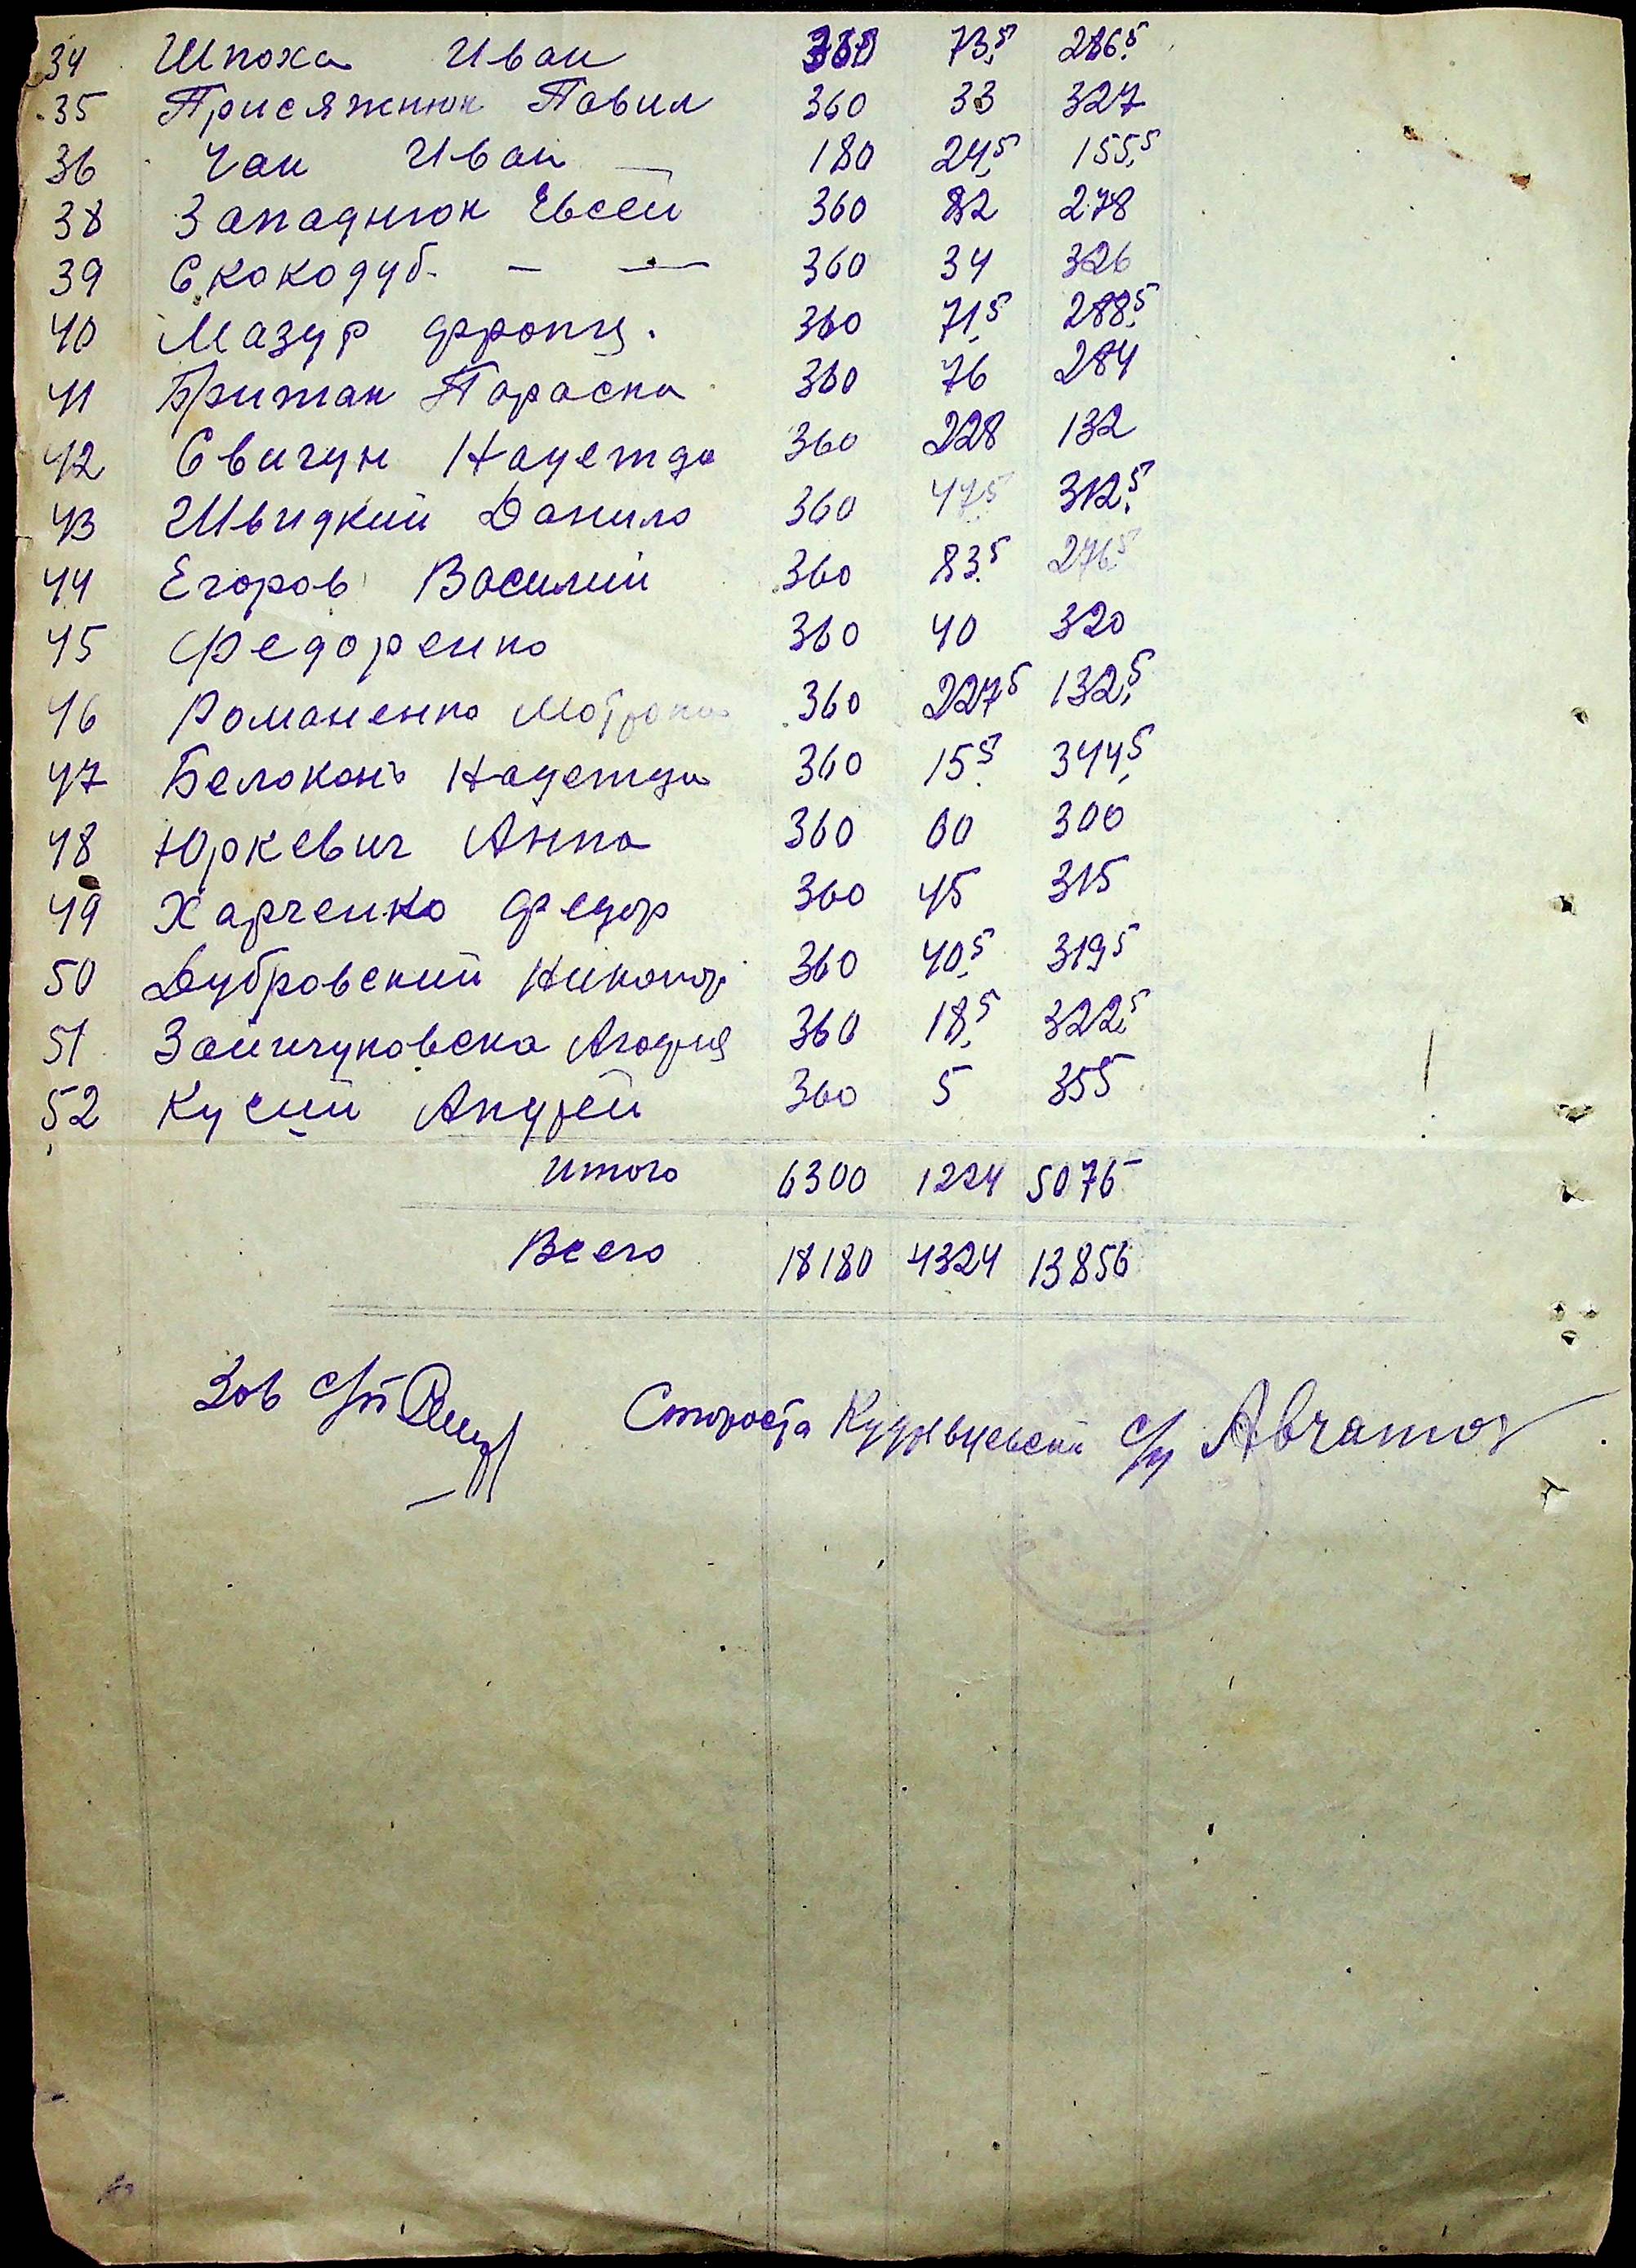 34 Шпоха Иван 360 73,5 286,5
35 Присяжнюк Павил 360 33 327
36 Чан Иван 180 24,5 155,5
38 Западнюк Евсей 360 82 278
39 Скокодуб - — 360 34 326
40 Мазур Франц. 360 71,5 288,5
41 Брижак Параска 360 76 284
42 Свичун Надежда 360 228 132
43 Швидкий Данило 360 47,5 312,5
44 Егоров Василий 360 83,5 276,5
45 Федоренко 360 40 320
46 Романенко Мотрона 360 227,5 132,5
47 Белоконь Надежда 360 15,5 344,5
48 Юркевич Анна 360 60 300
49 Харченко Федор 360 45 315
50 Дубровский Никонор 360 40,5 319,5
51 360 18,5 322,5
52 Кусий Андрей 360 5 355
Итого 6300 1224 5076
Всего 18180 4324 13856
Зав с/п Староста Кудревцевский с/у